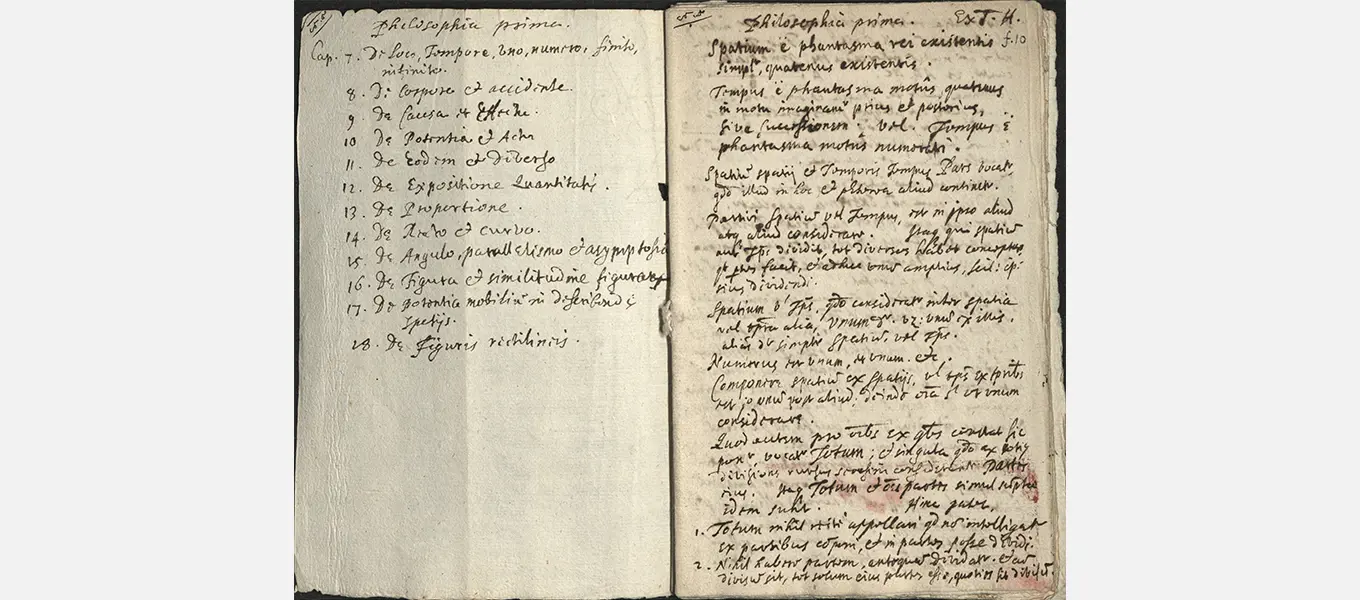 Philosophia prima.
Cap. 7. De Loco, Tempore, Uno, numero, finito,
infinito.
8. De Corpore et accidente.
9 De Causa et Effectu.
10 De Potentia et Actu
11. De Eodem et Diverso
12. De Expositione Quantitatis.
13. De Proportione.
14. De Recto et curvo.
15. De Angulo, parallelismo et asymptosia
16. De Figura et similitudine figurarum
17. De potentia mobiliu in describendis
18. De Figuris rectilineis.
Philosophia prima. Ext. H.
Spatium e phantasma rei existentis f.10
simplr, quatenus existentis.
Tempus e phantasma motus, quatenus
in motu imaginamr prius et posterius,
sive Successionem. vel. Tempus e
phantasma motus numerati.
Spatiu spatij et Temporis Tempus Pars vocatr,
qdo illud in hoc et aliud continetr.
Partiri Spatiu vel Tempus, est in ipso aliud
atq aliud considerare. Itaq qui spatiu
aut Tps dividit, tot diversos habet conceptus
qt ptes facit, et adhuc unu amplius, scil:
dividendi.
Spatium vl Tps, qdo consideratr inter spatia
vel alia, Vnum dr. vz: unu ex illis.
alias dr simplr Spatiu, vel Tps.
Numerus est unum, et unum. etc.
Componere spatiu ex spatijs, vl tps ex tpribs
est unu post aliud; deinde oia ut unum
considerare.
Quod autem pro oibs ex qbs constat sic
ponr vocatr Totum; et singula qdo ex totius
divisione rursus seorsim considerantr Partes
eius. Itaq Totum et oes partes simul sumptae
idem sunt. Hinc patet,
1. Totum nihil recte appellari qd no intelligatr
ex partibus coponi, et in partes posse dividi.
2. Nihil habere partem, antequa dividatr. et cu
divisu sit, tot solum eius partes esse, quoties sit divisu.